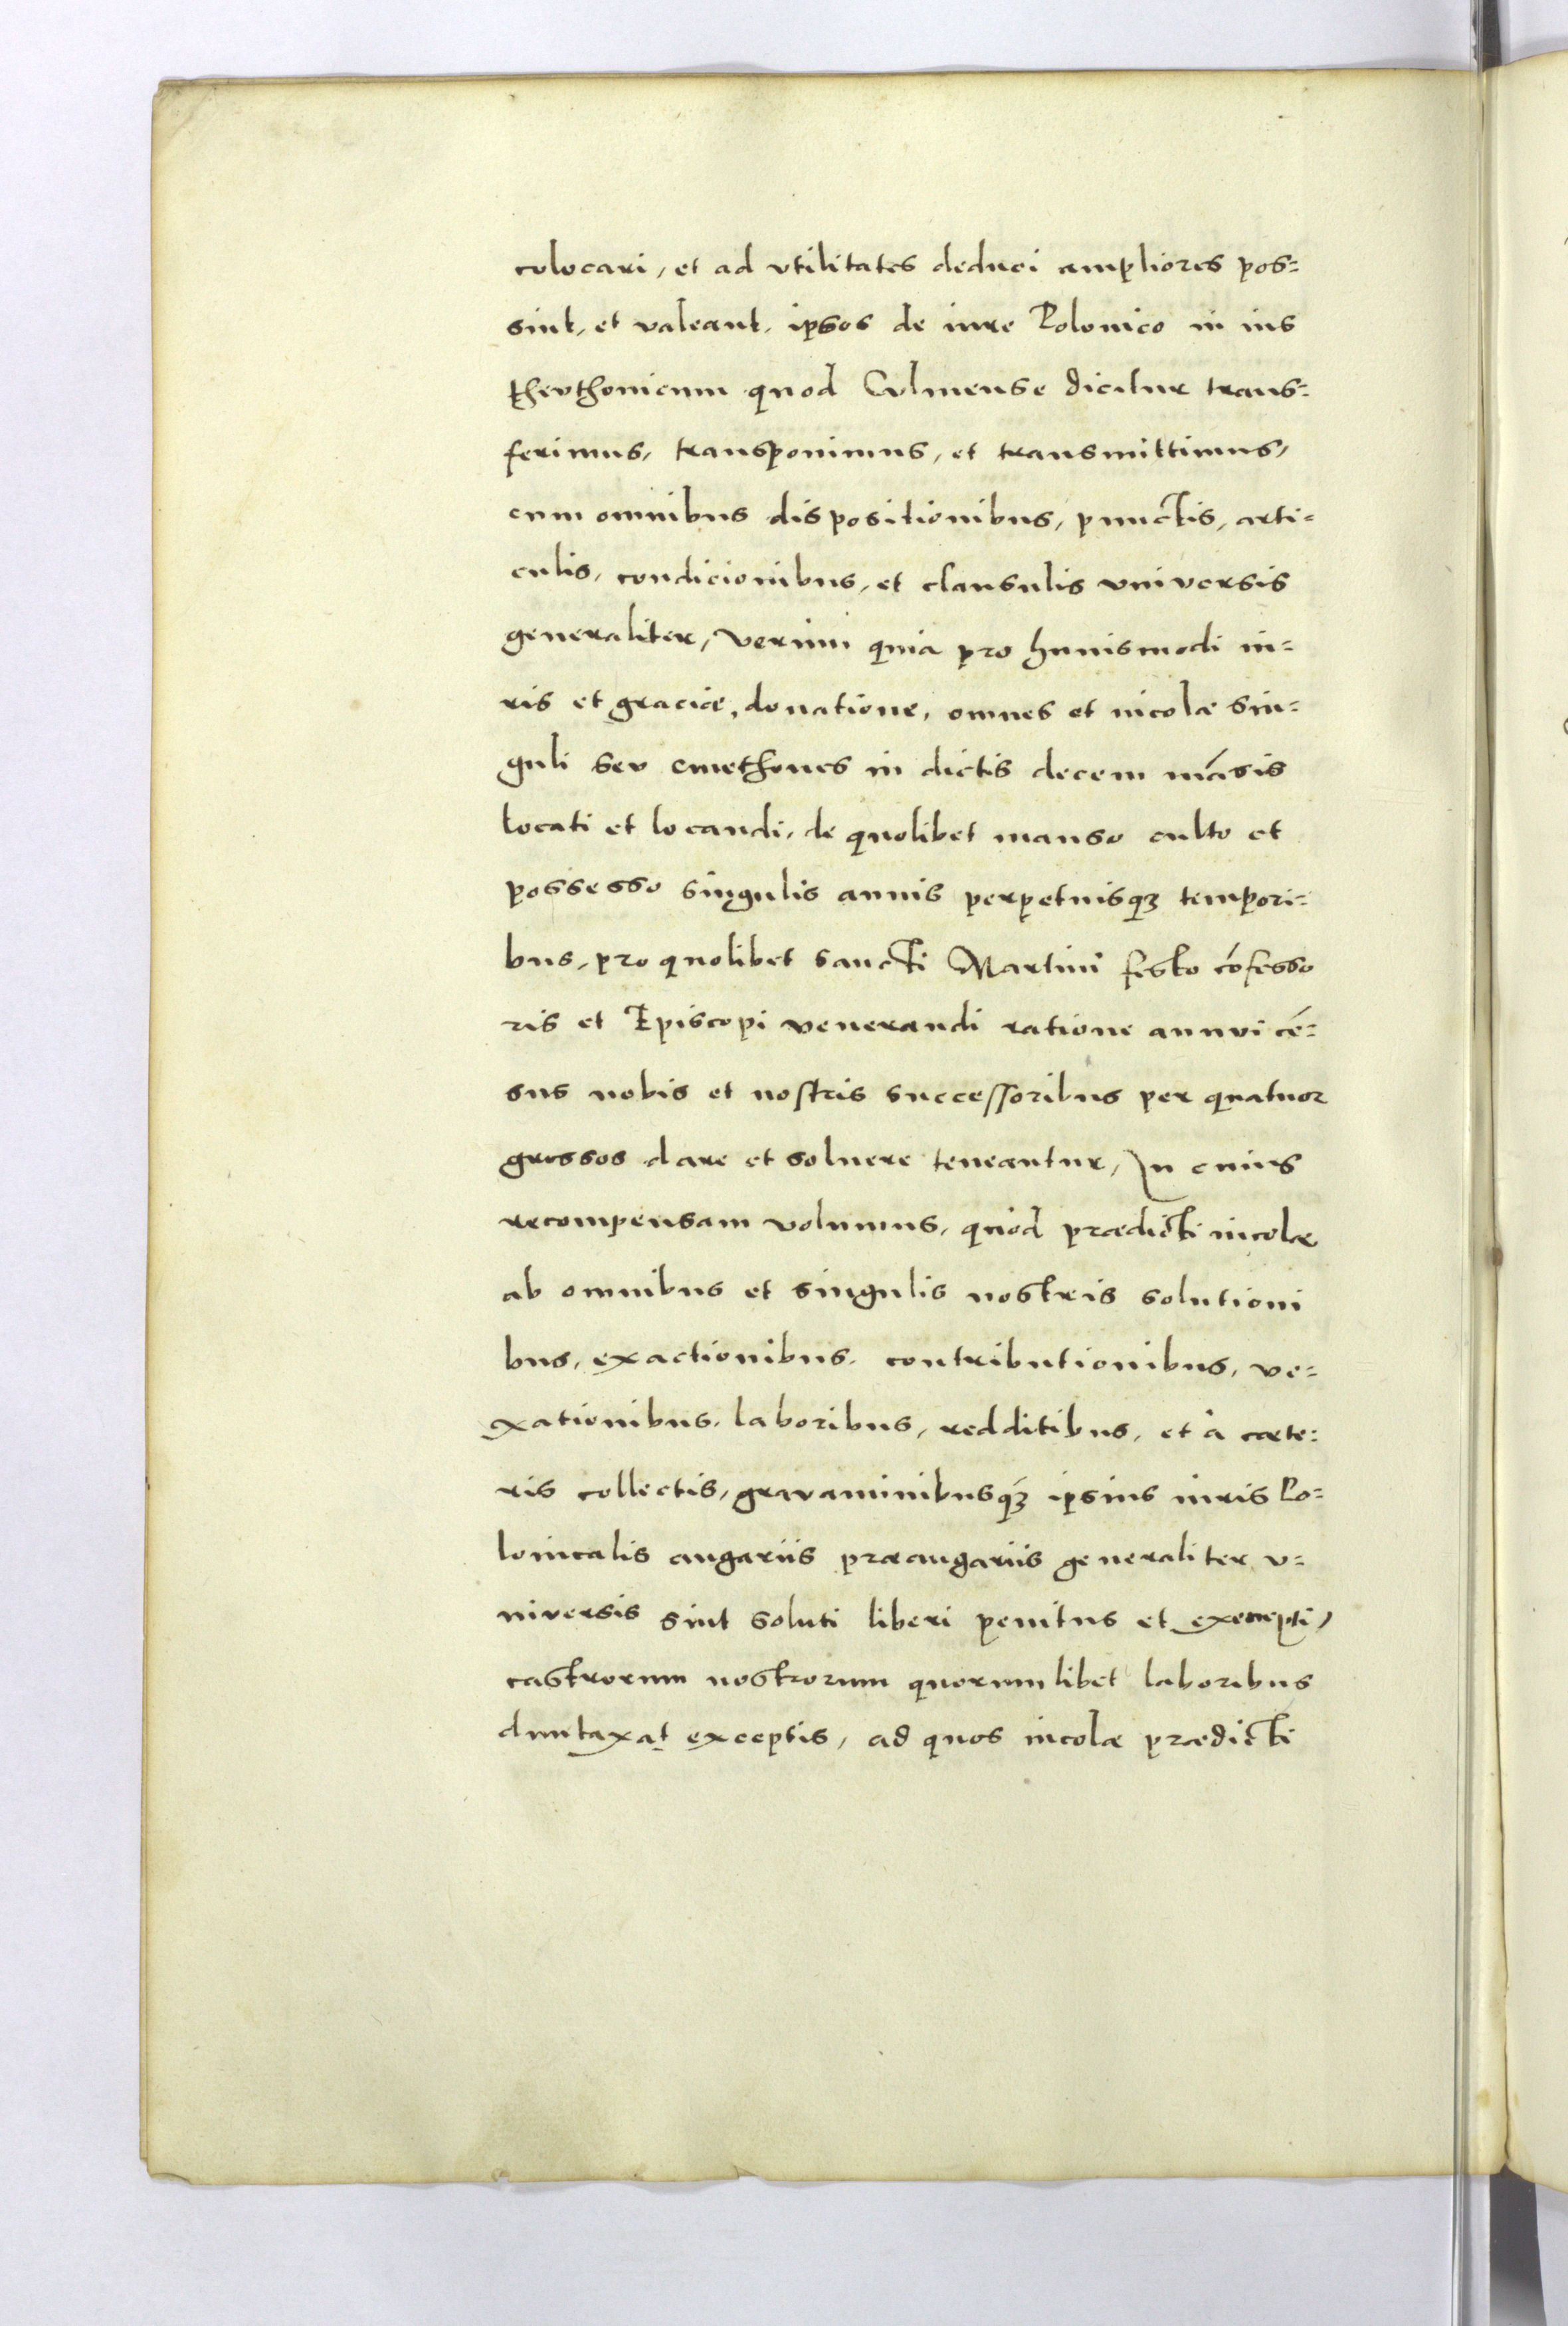 colocari, et ad vtilitates deduci ampliores pos=
sint, et valeant, ipsos de iure Polonico in ius
thevthonicum quod Culmense dicitur trans=
ferimus, transponimus, et transmittimus,
cum omnibus dispositionibus, punctis, arti=
culis, condicionibus, et clausulis vniversis
generaliter, verum quia pro huuismodi iu=
ris et graciæ, donatione, omnes et incolæ sin=
guli sev cmethones in dictis decem mãsis
locati et locandi, de quolibet manso culto et
possesso singulis annis perpetuisqꝫ tempori=
bus, pro quolibet sancti Martini festo cõfesso
ris et Episcopi venerandi ratione annvi cẽ=
sus nobis et nostris successoribus per quatuor
grossos dare et soluere teneantur, In cuius
recompensam volumus, quod prædicti incolæ
ab omnibus et singulis nostris solutioni
bus, exactionibus, contributionibus, ve=
xationibus, laboribus, redditibus, et à cæte=
ris collectis, gravaminibusqꝫ ipsius iuris Po=
lonicalis angariis præangariis generaliter v=
niversis sint soluti liberi penitus et exempti,
castrorum nostrorum quorumlibet laboribus
duntaxat exceptis, ad quos incolæ prædicti